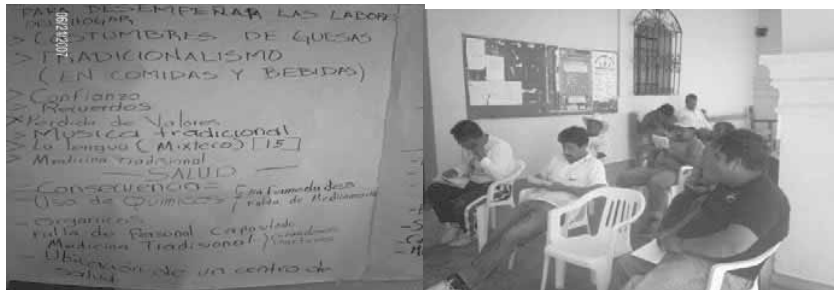 PARA DESEMPEÑAR LAS LABORES
DEL HOGAR
> COSTUMBRES DE GUESAS
> TRADICIONALISMO
(EN COMIDAS Y BEBIDAS)
> Confianza
> Recuerdos
Perdida de Valores
> Musica tradicional
> La lengua (Mixteco) 15
> Medicina Tradicional
— SALUD —
= Consecuencia = Enfermedades
Uso de Quimicos Falta de Medicamentos
- organicos
- falta de Personal Capacitado
Medicina Tradicional
- Ubicación de un centro de
salud.
06/23/2007